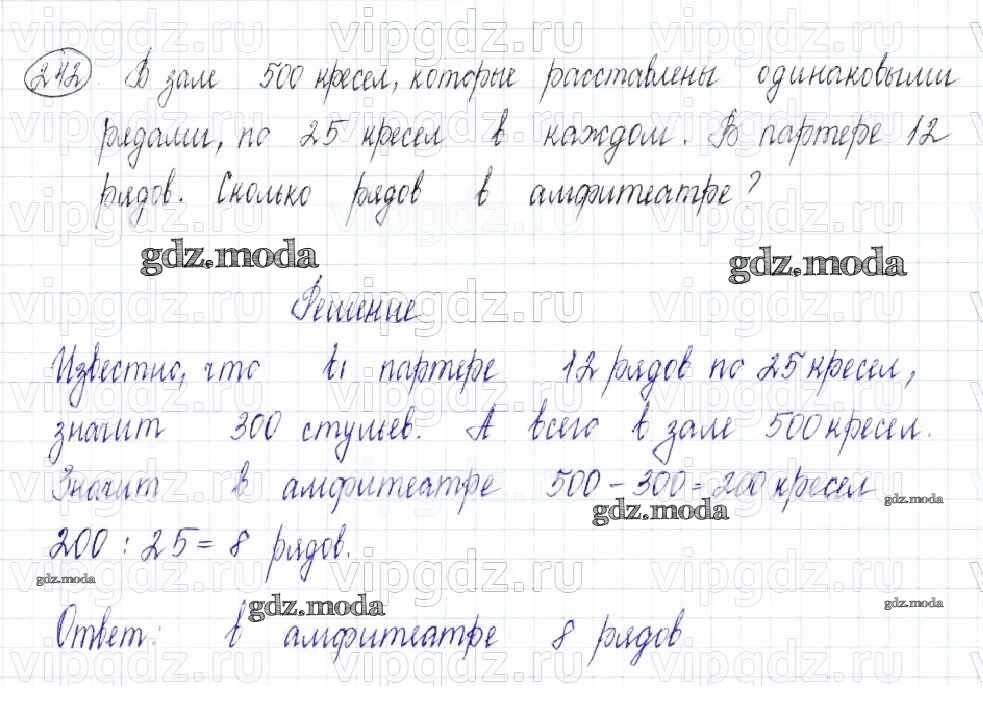 242. В зале 500 кресел, которые расставлены одинаковыми
рядами, по 25 кресел в каждом. В партере 12
рядов. Сколько рядов в амфитеатре?
gdz.moda gdz.moda
Решение
Известно, что в партере 12 рядов по 25 кресел,
значит 300 стульев. А всего в зале 500 кресел.
Значит в амфитеатре 500 - 300 = 200 кресел
gdz.moda gdz.moda
200 : 25 = 8 рядов.
gdz.moda
gdz.moda gdz.moda
Ответ: в амфитеатре 8 рядов
vipgdz.ru